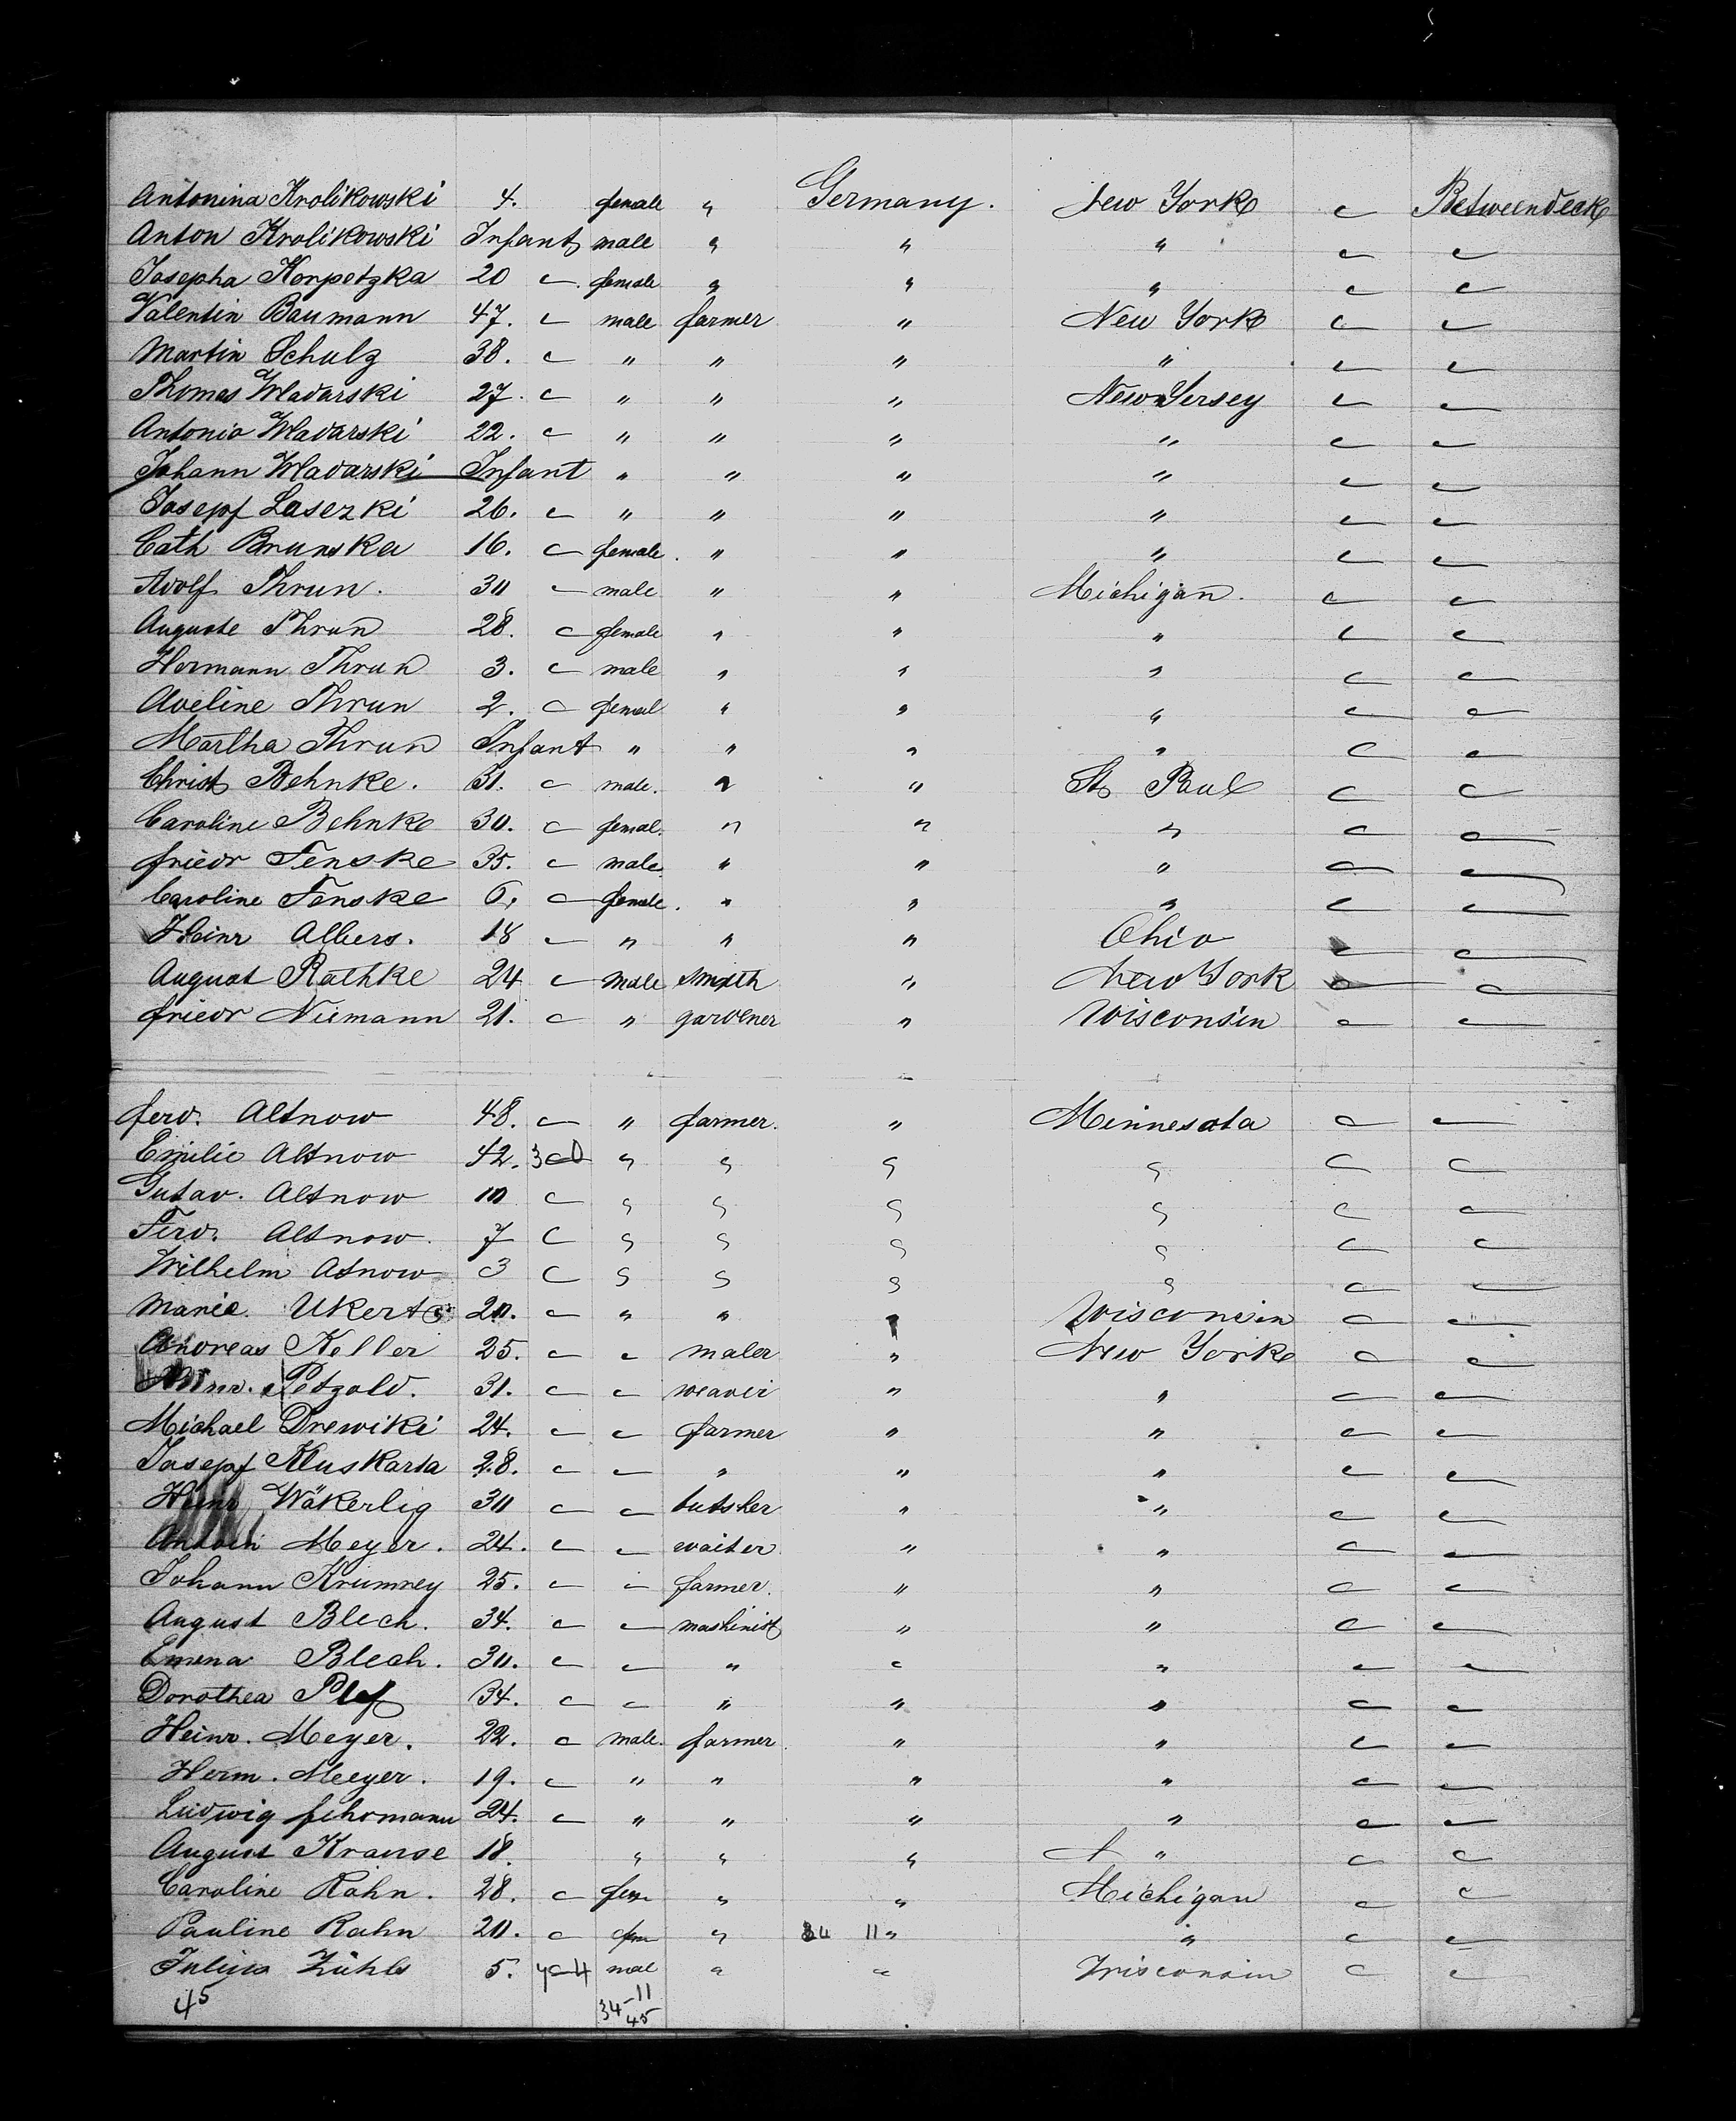 Antonina Krolikowski 4. female " Germany. New York " Betweendeck
Anton Krolikowski Infant male " " " " "
Josepha Korpetzka 20 " female " " " " "
Valentin Baumann 47. " male farmer " New York " "
Martin Schulz 38. " " " " " " "
Thomas Wladarski 27. " " " " New Jersey " "
Antonia Wladarski 22. " " " " " " "
Johann Wladarski Infant " " " " " "
Josepf Laserki 26. " " " " " " "
Cath Brunska 16. " female. " " " " "
Adolf Thrun. 30 " male " " Michigan. " "
Auguste Thrun 28. " female " " " " "
Hermann Thrun 3. " male " " " " "
Adeline Thrun 2. " femal " " " " "
Martha Thrun Infant " " " " " "
Christ Behnke. 31. " male. " " St Paul " "
Caroline Behnke 30. " femal. " " " " "
friedr Fenske 35. " male " " " " "
Caroline Fenske 6. " female. " " " " "
Heinr Albers. 18 " " " " Ohio " "
August Rathke 24 " male smith " New York " "
friedr Niemann 21. " " gardener " Wisconsin " "
ferd. Altnow 48. " " farmer. " Minnesota " "
Emilie Altnow 42. " " " " " " "
Gutav. Altnow 10 " " " " " " "
Ferd. Altnow. 7 " " " " " " "
Wilhelm Atnow 3 " " " " " " "
Marie Ukert 20. " " " " Wisconsin " "
Andreas Keller 25. " " maler " New York " "
Petzold. 31. " " weaver " " " "
Michael Drewiki 24. " " farmer " " " "
Josepf Kluskarta 28. " " " " " " "
Heinr Wäkerlig 30 " " butsher " " " "
Anton Meyer. 24. " " waiter " " " "
Johann Krumrey 25. " " farmer. " " " "
August Blech. 34. " " mashinist " " " "
Emma Blech. 30. " " " " " " "
Dorothea 34. " " " " " " "
Heinr. Meyer. 22. " male. farmer. " " " "
Herm. Meeyer. 19. " " " " " " "
Ludwig fehrmann 24. " " " " " " "
August Krause 18. " " " " " "
Caroline Rahn. 28. " fem " " Michigan " "
Pauline Rahn 20. " fem " 34 11 " " " "
Julius Zühls 5. " mal " " Wisconsin " "
45 34-11
45